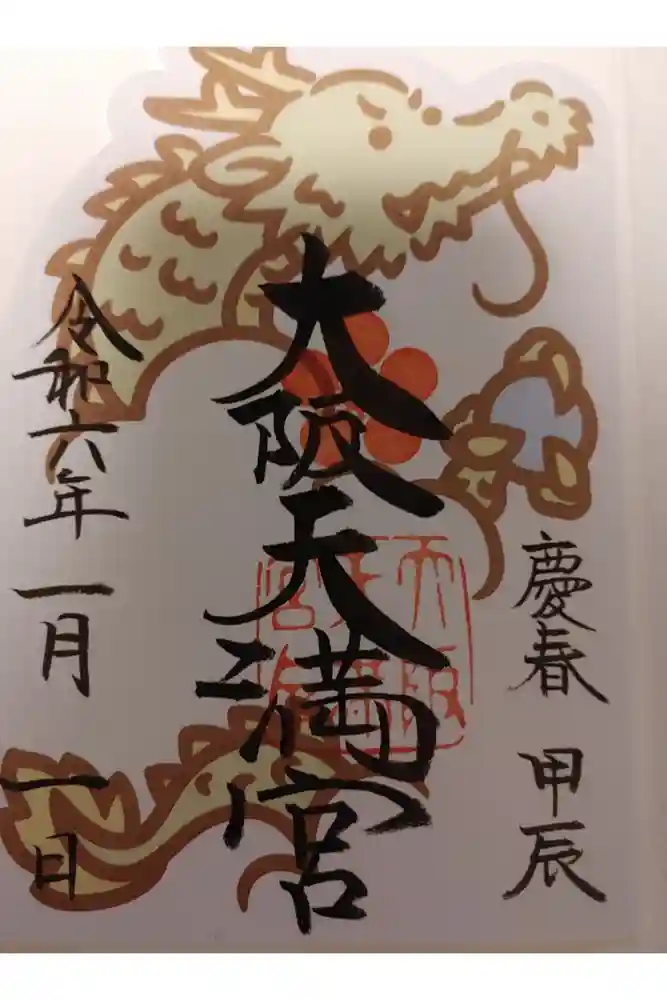 慶春 甲辰
大阪天満宮
令和六年一月一日